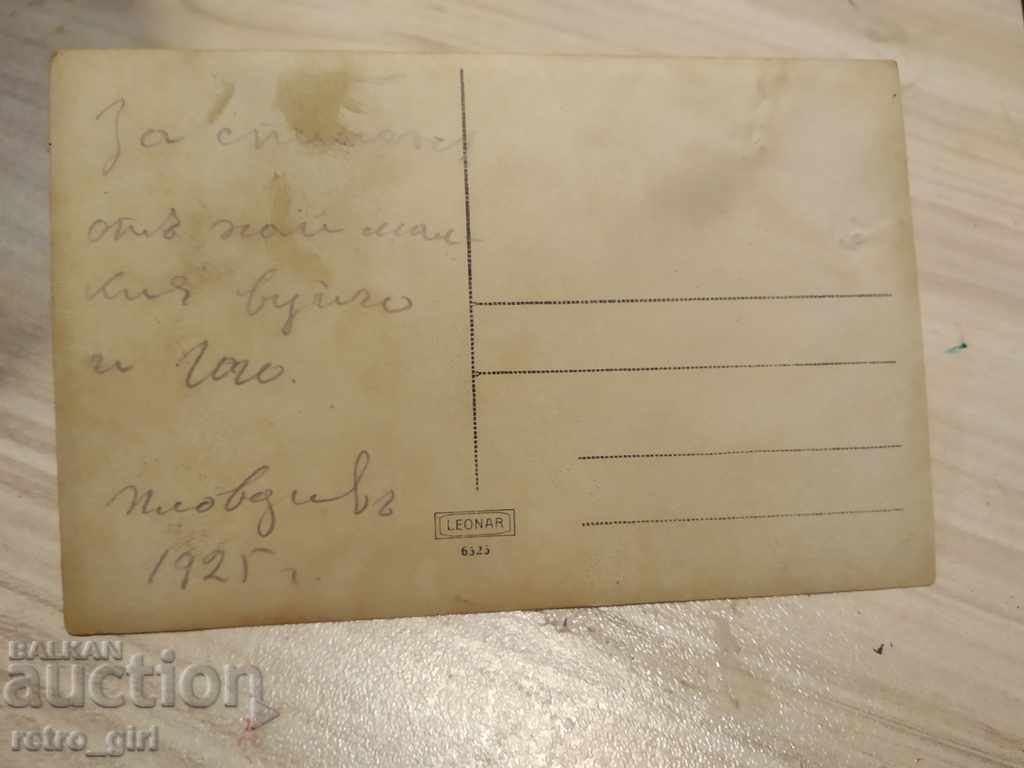 За спомен
отъ най мал-
кия вуйчо
и Гого.
Пловдивъ
1925 г.
LEONAR
6323
BALKAN
auction
retro_girl